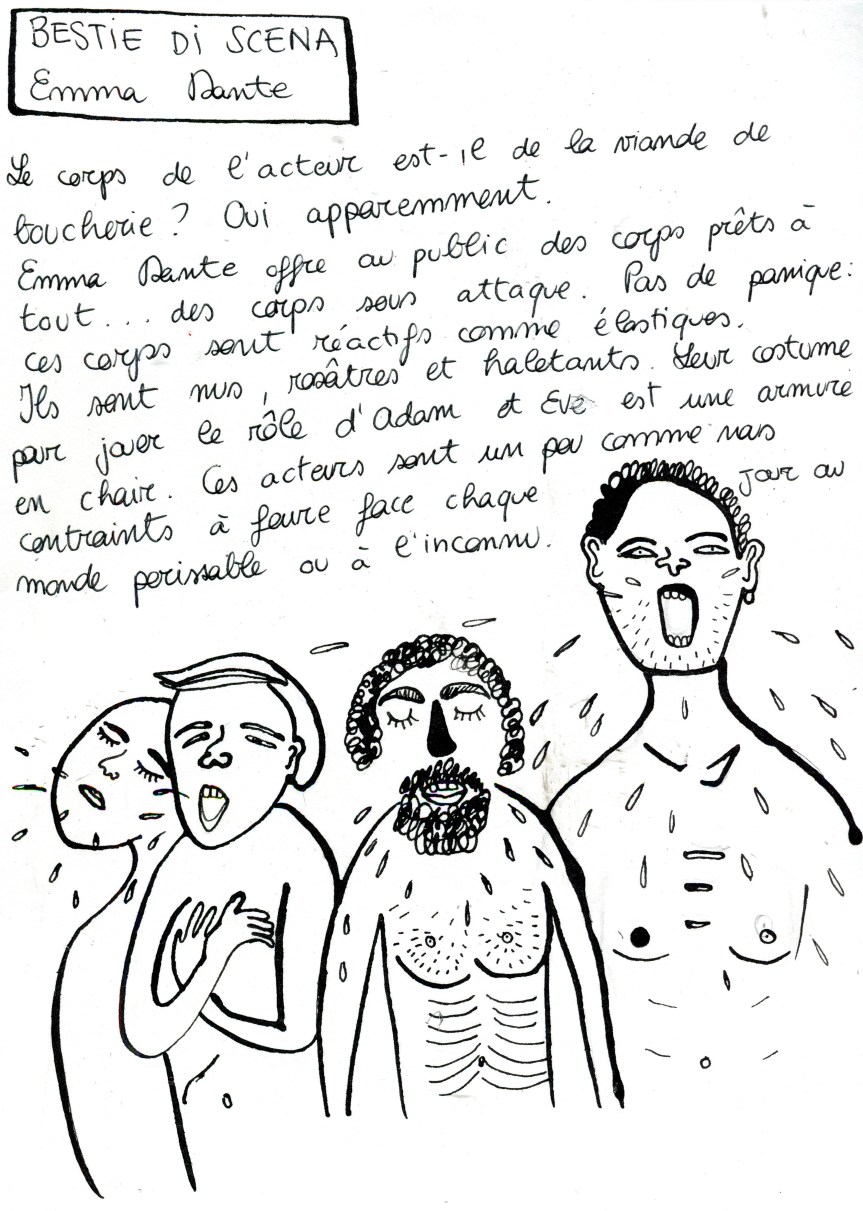 BESTIE DI SCENA
Emma Dante
Le corps de l'acteur est-il de la viande de
boucherie ? Oui apparemment.
Emma Dante offre au public des corps prêts à
tout... des corps sous attaque. Pas de panique :
ces corps sont réactifs comme élastiques.
Ils sont nus, rosâtres et haletants. Leur costume
pour jouer le rôle d'Adam et Eve est une armure
en chair. Ces acteurs sont un peu comme nous
contraints à faire face chaque jour au
monde perissable ou à l'inconnu.